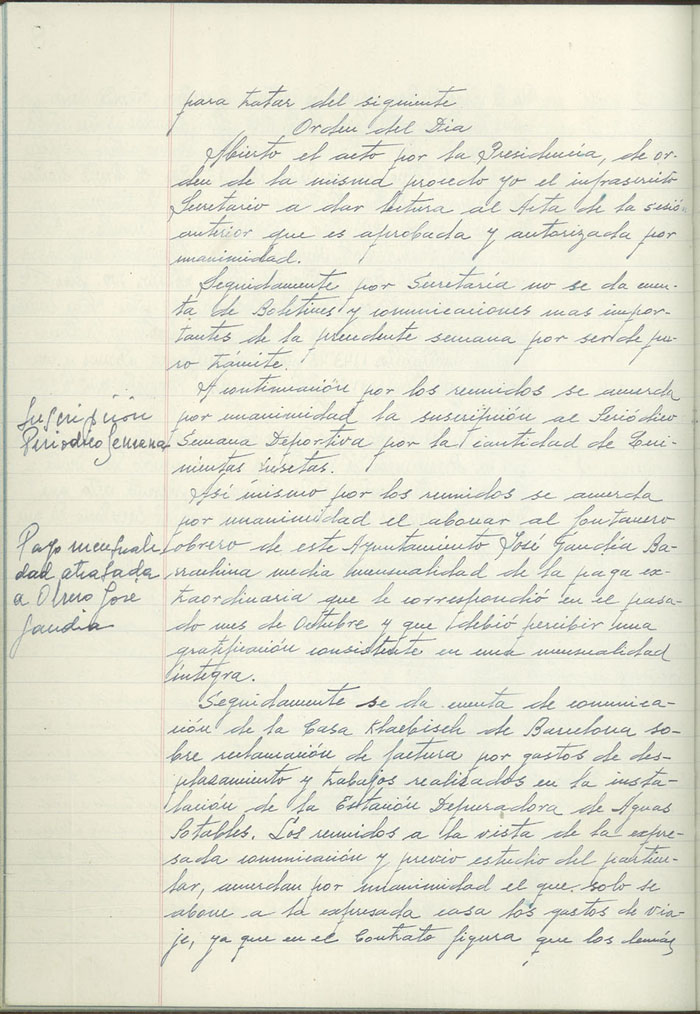 para tratar del siguiente
Orden del Dia
Abierto el acto por la Presidencia, de or-
den de la misma procedo yo el infrascrito
Secretario a dar lectura al Acta de la sesión
anterior que es aprobada y autorizada por
unanimidad.
Seguidamente por Secretaría no se da cuen-
ta de Boletines y comunicaciones mas impor-
tantes de la precedente semana por ser de pu-
ro trámite.
A continuación por los reunidos se acuerda
por unanimidad la suscripción al Periódico
Semana Deportiva por la cantidad de Qui-
nientas pesetas.
Así mismo por los reunidos se acuerda
por unanimidad el abonar al fontanero
obrero de este Ayuntamiento José Gandía Ba-
rrachina media mensualidad de la paga ex-
traordinaria que le correspondió en el pasa-
do mes de Octubre y que debió percibir una
gratificación consistente en una mensualidad
íntegra.
Seguidamente se da cuenta de comunica-
ción de la Casa Klaebisch de Barcelona so-
bre reclamación de factura por gastos de des-
plasamiento y trabajos realisados en la insta-
lación de la Estación Depuradora de Aguas
Potables. Los reunidos a la vista de la expre-
sada comunicación y previo estudio del particu-
lar, acuerdan por unanimidad el que solo se
abone a la expresada casa los gastos de via-
je, ya que en el Contrato figura que los demás
Suscripción
Periodico Semana
Pago mensuali
dad atrasada
a Obrero Jose
Gandia